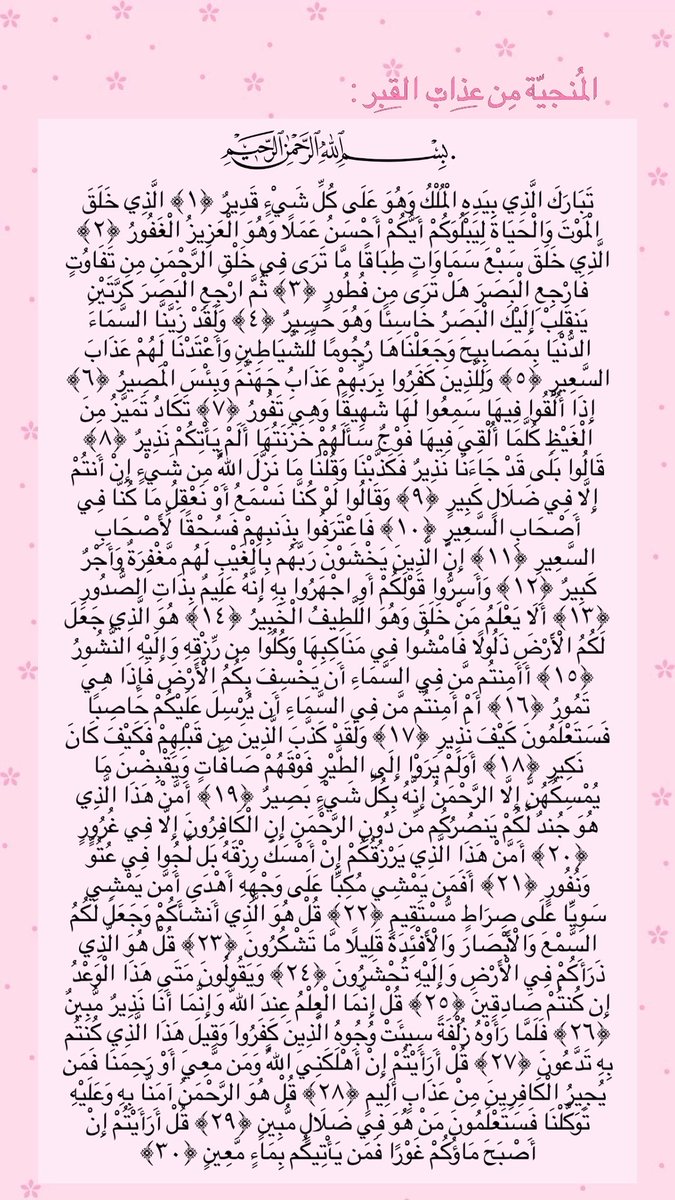 المُنجيّة مِن عِذابّ القبِر :
بِسْمِ اللهِ الرَّحْمٰنِ الرَّحِيْمِ.
تَبَارَكَ الَّذِي بِيَدِهِ الْمُلْكُ وَهُوَ عَلَى كُلِّ شَيْءٍ قَدِيرٌ ﴿١﴾ الَّذِي خَلَقَ
الْمَوْتَ وَالْحَيَاةَ لِيَبْلُوَكُمْ أَيُّكُمْ أَحْسَنُ عَمَلًا وَهُوَ الْعَزِيزُ الْغَفُورُ ﴿٢﴾
الَّذِي خَلَقَ سَبْعَ سَمَاوَاتٍ طِبَاقًا مَّا تَرَى فِي خَلْقِ الرَّحْمَنِ مِن تَفَاوُتٍ
فَارْجِعِ الْبَصَرَ هَلْ تَرَى مِن فُطُورٍ ﴿٣﴾ ثُمَّ ارْجِعِ الْبَصَرَ كَرَّتَيْنِ
يَنقَلِبْ إِلَيْكَ الْبَصَرُ خَاسِئًا وَهُوَ حَسِيرٌ ﴿٤﴾ وَلَقَدْ زَيَّنَّا السَّمَاءَ
الدُّنْيَا بِمَصَابِيحَ وَجَعَلْنَاهَا رُجُومًا لِّلشَّيَاطِينِ وَأَعْتَدْنَا لَهُمْ عَذَابَ
السَّعِيرِ ﴿٥﴾ وَلِلَّذِينَ كَفَرُوا بِرَبِّهِمْ عَذَابُ جَهَنَّمَ وَبِئْسَ الْمَصِيرُ ﴿٦﴾
إِذَا أُلْقُوا فِيهَا سَمِعُوا لَهَا شَهِيقًا وَهِيَ تَفُورُ ﴿٧﴾ تَكَادُ تَمَيَّزُ مِنَ
الْغَيْظِ كُلَّمَا أُلْقِيَ فِيهَا فَوْجٌ سَأَلَهُمْ خَزَنَتُهَا أَلَمْ يَأْتِكُمْ نَذِيرٌ ﴿٨﴾
قَالُوا بَلَى قَدْ جَاءَنَا نَذِيرٌ فَكَذَّبْنَا وَقُلْنَا مَا نَزَّلَ اللَّهُ مِن شَيْءٍ إِنْ أَنتُمْ
إِلَّا فِي ضَلَالٍ كَبِيرٍ ﴿٩﴾ وَقَالُوا لَوْ كُنَّا نَسْمَعُ أَوْ نَعْقِلُ مَا كُنَّا فِي
أَصْحَابِ السَّعِيرِ ﴿١٠﴾ فَاعْتَرَفُوا بِذَنبِهِمْ فَسُحْقًا لِّأَصْحَابِ
السَّعِيرِ ﴿١١﴾ إِنَّ الَّذِينَ يَخْشَوْنَ رَبَّهُم بِالْغَيْبِ لَهُم مَّغْفِرَةٌ وَأَجْرٌ
كَبِيرٌ ﴿١٢﴾ وَأَسِرُّوا قَوْلَكُمْ أَوِ اجْهَرُوا بِهِ إِنَّهُ عَلِيمٌ بِذَاتِ الصُّدُورِ
﴿١٣﴾ أَلَا يَعْلَمُ مَنْ خَلَقَ وَهُوَ اللَّطِيفُ الْخَبِيرُ ﴿١٤﴾ هُوَ الَّذِي جَعَلَ
لَكُمُ الْأَرْضَ ذَلُولًا فَامْشُوا فِي مَنَاكِبِهَا وَكُلُوا مِن رِّزْقِهِ وَإِلَيْهِ النُّشُورُ
﴿١٥﴾ أَأَمِنتُم مَّن فِي السَّمَاءِ أَن يَخْسِفَ بِكُمُ الْأَرْضَ فَإِذَا هِيَ
تَمُورُ ﴿١٦﴾ أَمْ أَمِنتُم مَّن فِي السَّمَاءِ أَن يُرْسِلَ عَلَيْكُمْ حَاصِبًا
فَسَتَعْلَمُونَ كَيْفَ نَذِيرِ ﴿١٧﴾ وَلَقَدْ كَذَّبَ الَّذِينَ مِن قَبْلِهِمْ فَكَيْفَ كَانَ
نَكِيرِ ﴿١٨﴾ أَوَلَمْ يَرَوْا إِلَى الطَّيْرِ فَوْقَهُمْ صَافَّاتٍ وَيَقْبِضْنَ مَا
يُمْسِكُهُنَّ إِلَّا الرَّحْمَنُ إِنَّهُ بِكُلِّ شَيْءٍ بَصِيرٌ ﴿١٩﴾ أَمَّنْ هَذَا الَّذِي
هُوَ جُندٌ لَّكُمْ يَنصُرُكُم مِّن دُونِ الرَّحْمَنِ إِنِ الْكَافِرُونَ إِلَّا فِي غُرُورٍ
﴿٢٠﴾ أَمَّنْ هَذَا الَّذِي يَرْزُقُكُمْ إِنْ أَمْسَكَ رِزْقَهُ بَل لَّجُّوا فِي عُتُوٍّ
وَنُفُورٍ ﴿٢١﴾ أَفَمَن يَمْشِي مُكِبًّا عَلَى وَجْهِهِ أَهْدَى أَمَّن يَمْشِي
سَوِيًّا عَلَى صِرَاطٍ مُّسْتَقِيمٍ ﴿٢٢﴾ قُلْ هُوَ الَّذِي أَنشَأَكُمْ وَجَعَلَ لَكُمُ
السَّمْعَ وَالْأَبْصَارَ وَالْأَفْئِدَةَ قَلِيلًا مَّا تَشْكُرُونَ ﴿٢٣﴾ قُلْ هُوَ الَّذِي
ذَرَأَكُمْ فِي الْأَرْضِ وَإِلَيْهِ تُحْشَرُونَ ﴿٢٤﴾ وَيَقُولُونَ مَتَى هَذَا الْوَعْدُ
إِن كُنتُمْ صَادِقِينَ ﴿٢٥﴾ قُلْ إِنَّمَا الْعِلْمُ عِندَ اللَّهِ وَإِنَّمَا أَنَا نَذِيرٌ مُّبِينٌ
﴿٢٦﴾ فَلَمَّا رَأَوْهُ زُلْفَةً سِيئَتْ وُجُوهُ الَّذِينَ كَفَرُوا وَقِيلَ هَذَا الَّذِي كُنتُم
بِهِ تَدَّعُونَ ﴿٢٧﴾ قُلْ أَرَأَيْتُمْ إِنْ أَهْلَكَنِيَ اللَّهُ وَمَن مَّعِيَ أَوْ رَحِمَنَا فَمَن
يُجِيرُ الْكَافِرِينَ مِنْ عَذَابٍ أَلِيمٍ ﴿٢٨﴾ قُلْ هُوَ الرَّحْمَنُ آمَنَّا بِهِ وَعَلَيْهِ
تَوَكَّلْنَا فَسَتَعْلَمُونَ مَنْ هُوَ فِي ضَلَالٍ مُّبِينٍ ﴿٢٩﴾ قُلْ أَرَأَيْتُمْ إِنْ
أَصْبَحَ مَاؤُكُمْ غَوْرًا فَمَن يَأْتِيكُم بِمَاءٍ مَّعِينٍ ﴿٣٠﴾